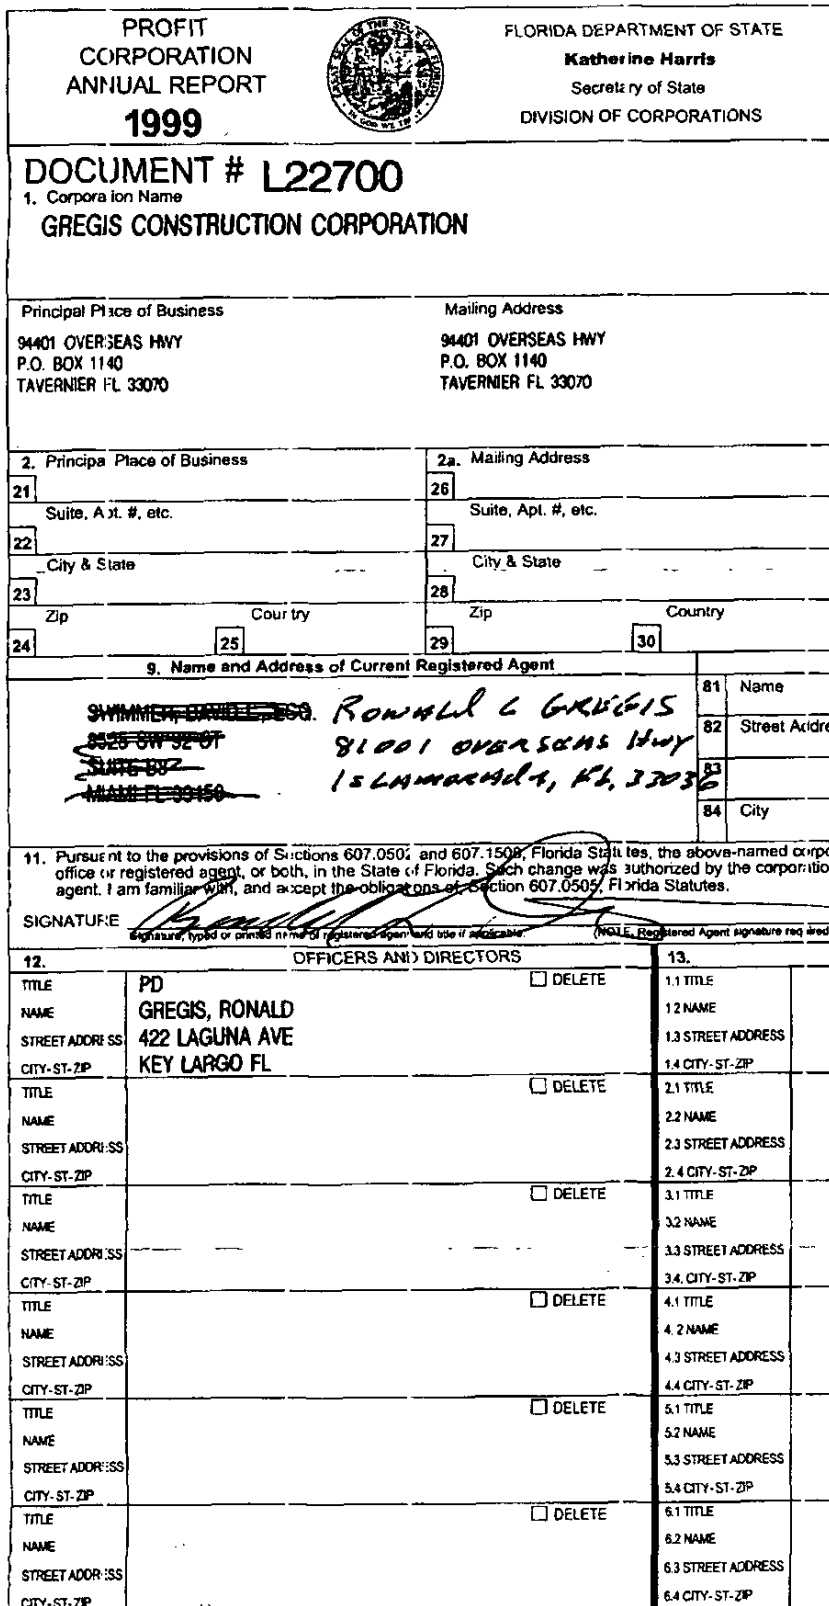 PROFIT
CORPORATION
ANNUAL REPORT
1999
FLORIDA DEPARTMENT OF STATE
Katherine Harris
Secretary of State
DIVISION OF CORPORATIONS
DOCUMENT # L22700
1. Corporation Name
GREGIS CONSTRUCTION CORPORATION
Principal Place of Business
Mailing Address
94401 OVERSEAS HWY
P.O. BOX 1140
TAVERNIER FL 33070
94401 OVERSEAS HWY
P.O. BOX 1140
TAVERNIER FL 33070
2. Principal Place of Business
2a. Mailing Address
21
26
Suite, Apt. #, etc.
Suite, Apt. #, etc.
22
27
City & State
City & State
23
28
Zip
Country
Zip
Country
24
25
29
30
9. Name and Address of Current Registered Agent
SWIMMER, DAVID E., ESQ.
MIAMI FL
RONALD L GREGIS
81001 OVERSEAS Hwy
ISLAMORADA, FL, 33036
81 Name
82 Street Addre
83
84 City
11. Pursuant to the provisions of Sections 607.0502 and 607.1508, Florida Statutes, the above-named corpo
office or registered agent, or both, in the State of Florida. Such change was authorized by the corporatio
agent. I am familiar with, and accept the obligations of, Section 607.0505, Florida Statutes.
SIGNATURE
Signature, typed or printed name of registered agent and title if applicable.
(NOTE, Registered Agent signature required
12. OFFICERS AND DIRECTORS
13.
TITLE PD DELETE
NAME GREGIS, RONALD
STREET ADDRESS 422 LAGUNA AVE
CITY-ST-ZIP KEY LARGO FL
1.1 TITLE
1.2 NAME
1.3 STREET ADDRESS
1.4 CITY-ST-ZIP
TITLE DELETE
NAME
STREET ADDRESS
CITY-ST-ZIP
2.1 TITLE
2.2 NAME
2.3 STREET ADDRESS
2.4 CITY-ST-ZIP
TITLE DELETE
NAME
STREET ADDRESS
CITY-ST-ZIP
3.1 TITLE
3.2 NAME
3.3 STREET ADDRESS
3.4. CITY-ST-ZIP
TITLE DELETE
NAME
STREET ADDRESS
CITY-ST-ZIP
4.1 TITLE
4.2 NAME
4.3 STREET ADDRESS
4.4 CITY-ST-ZIP
TITLE DELETE
NAME
STREET ADDRESS
CITY-ST-ZIP
5.1 TITLE
5.2 NAME
5.3 STREET ADDRESS
5.4 CITY-ST-ZIP
TITLE DELETE
NAME
STREET ADDRESS
CITY-ST-ZIP
6.1 TITLE
6.2 NAME
6.3 STREET ADDRESS
6.4 CITY-ST-ZIP